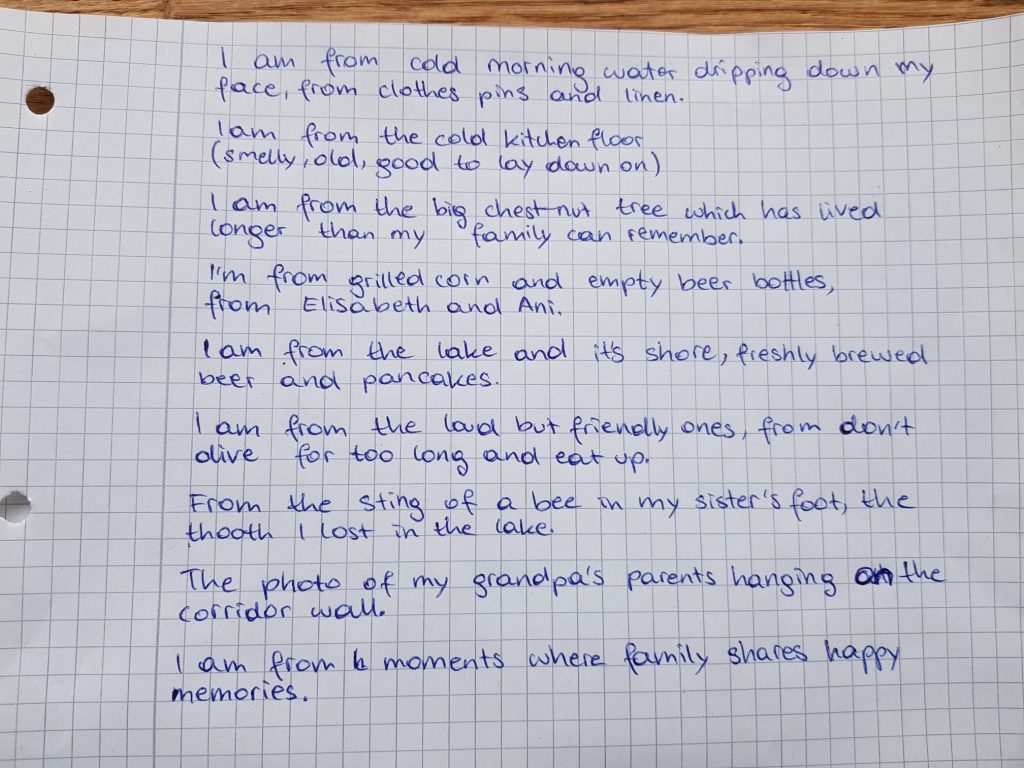 I am from cold morning water dripping down my
face, from clothes pins and linen.
I am from the cold kitchen floor
(smelly, old, good to lay down on)
I am from the big chestnut tree which has lived
longer than my family can remember.
I'm from grilled corn and empty beer bottles,
from Elisabeth and Ani.
I am from the lake and it's shore, freshly brewed
beer and pancakes.
I am from the loud but friendly ones, from don't
dive for too long and eat up.
From the sting of a bee in my sister's foot, the
thooth I lost in the lake.
The photo of my grandpa's parents hanging on the
corridor wall.
I am from moments where family shares happy
memories.